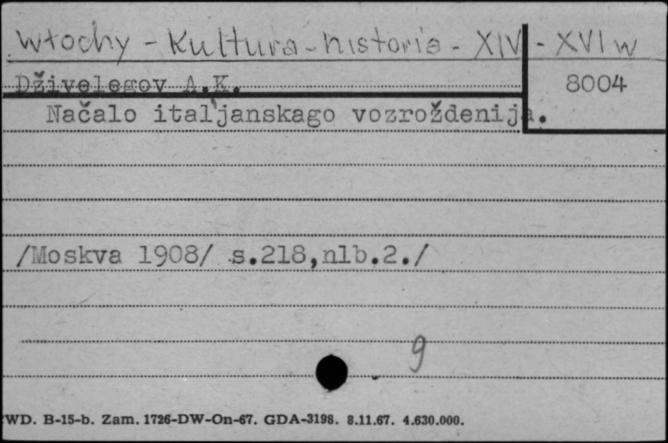 Włochy - Kultura - historia - XIV - XVI w
Dživelegov A.K.
8004
Načalo ital'janskago vozroždenija.
/Moskva 1908/ s.218,nlb.2./
9
WD. B-15-b. Zam. 1726-DW-On-67. GDA-3198. 8.11.67. 4.630.000.